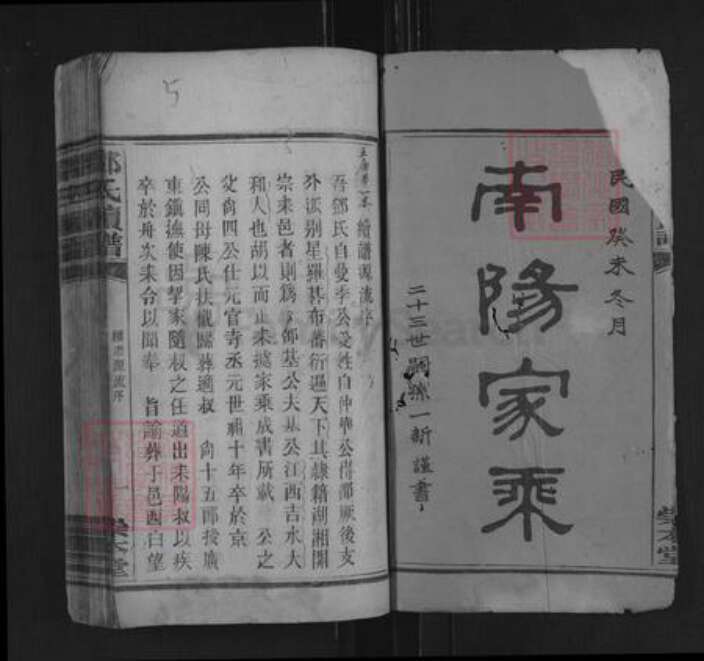 民國癸未冬月
南陽家乘
二十三世嗣孫一新謹書
榮本堂
續譜源流序
吾鄧氏自曼季公受姓自仲華公得鄧厥後支
外派别星羅碁布蕃衍遍天下其隸籍湖湘開
宗耒邑者則爲鄧基公夫基公江西吉水大
和人也胡以而止耒據家乘成書所載 公之
父尙四公仕元官寺丞元世祖十年卒於京
公同母陳氏扶櫬歸葬適叔 尙十五郎授廣
東鎭撫使因挈家隨叔之任道出耒陽叔以疾
卒於舟次耒令以聞奉 旨諭葬于邑西白望
鄧氏續譜
續譜源流序
一
榮本堂
5